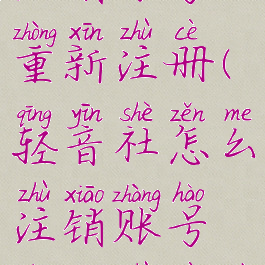 zhòng xīn zhù cè
重新注册(
qīng yīn shè zěn me
轻音社怎么
zhù xiāo zhàng hào
注销账号